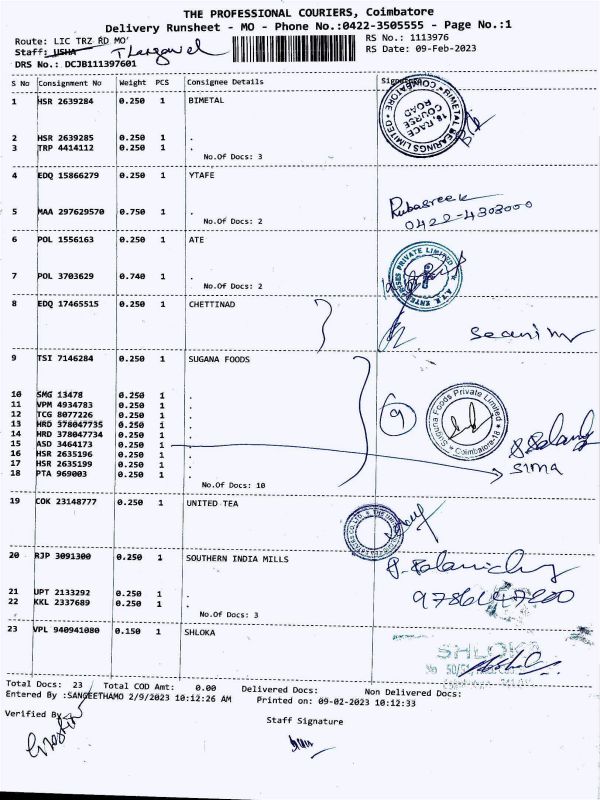 THE PROFESSIONAL COURIERS, Coimbatore
Delivery Runsheet - MO - Phone No.:0422-3505555 - Page No.:1
Route: LIC TRZ RD MO
RS No.: 1113976
Staff: USHA
RS Date: 09-Feb-2023
DRS No.: DCJB111397601
S No Consignment No Weight PCS Consignee Details Signature
1 HSR 2639284 0.250 1 BIMETAL
BIMETAL BEARINGS LIMITED COIMBATORE
18, RACE COURSE ROAD
2 HSR 2639285 0.250 1 .
3 TRP 4414112 0.250 1 .
No.Of Docs: 3
4 EDQ 15866279 0.250 1 YTAFE
Rubasree K
0422-4303000
5 MAA 297629570 0.750 1 .
No.Of Docs: 2
6 POL 1556163 0.250 1 ATE
A.T.E. ENTERPRISES PRIVATE LIMITED
7 POL 3703629 0.740 1 .
No.Of Docs: 2
8 EDQ 17465515 0.250 1 CHETTINAD
9 TSI 7146284 0.250 1 SUGANA FOODS
10 SMG 13478 0.250 1 .
11 VPM 4934783 0.250 1 .
12 TCG 8077226 0.250 1 .
13 HRD 378047735 0.250 1 .
14 HRD 378047734 0.250 1 .
15 ASD 3464173 0.250 1 .
16 HSR 2635196 0.250 1 .
17 HSR 2635199 0.250 1 .
18 PTA 969003 0.250 1 .
No.Of Docs: 10
9
Suguna Foods Private Limited
Coimbatore-18
SIMA
19 COK 23148777 0.250 1 UNITED TEA
20 RJP 3091300 0.250 1 SOUTHERN INDIA MILLS
21 UPT 2133292 0.250 1 .
22 KKL 2337689 0.250 1 .
No.Of Docs: 3
23 VPL 940941080 0.150 1 SHLOKA
SHLOKA
Total Docs: 23 Total COD Amt: 0.00 Delivered Docs: Non Delivered Docs:
Entered By :SANGEETHAMO 2/9/2023 10:12:26 AM Printed on: 09-02-2023 10:12:33
Verified By
Staff Signature